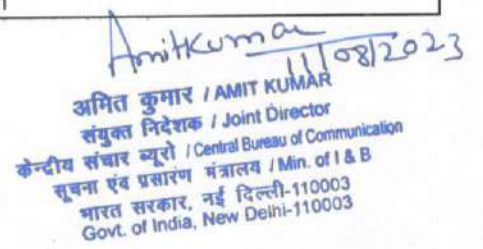 AmitKumar
11/08/2023
अमित कुमार / AMIT KUMAR
संयुक्त निदेशक / Joint Director
केन्द्रीय संचार ब्यूरो / Central Bureau of Communication
सूचना एवं प्रसारण मंत्रालय / Min. of I & B
भारत सरकार, नई दिल्ली-110003
Govt. of India, New Delhi-110003